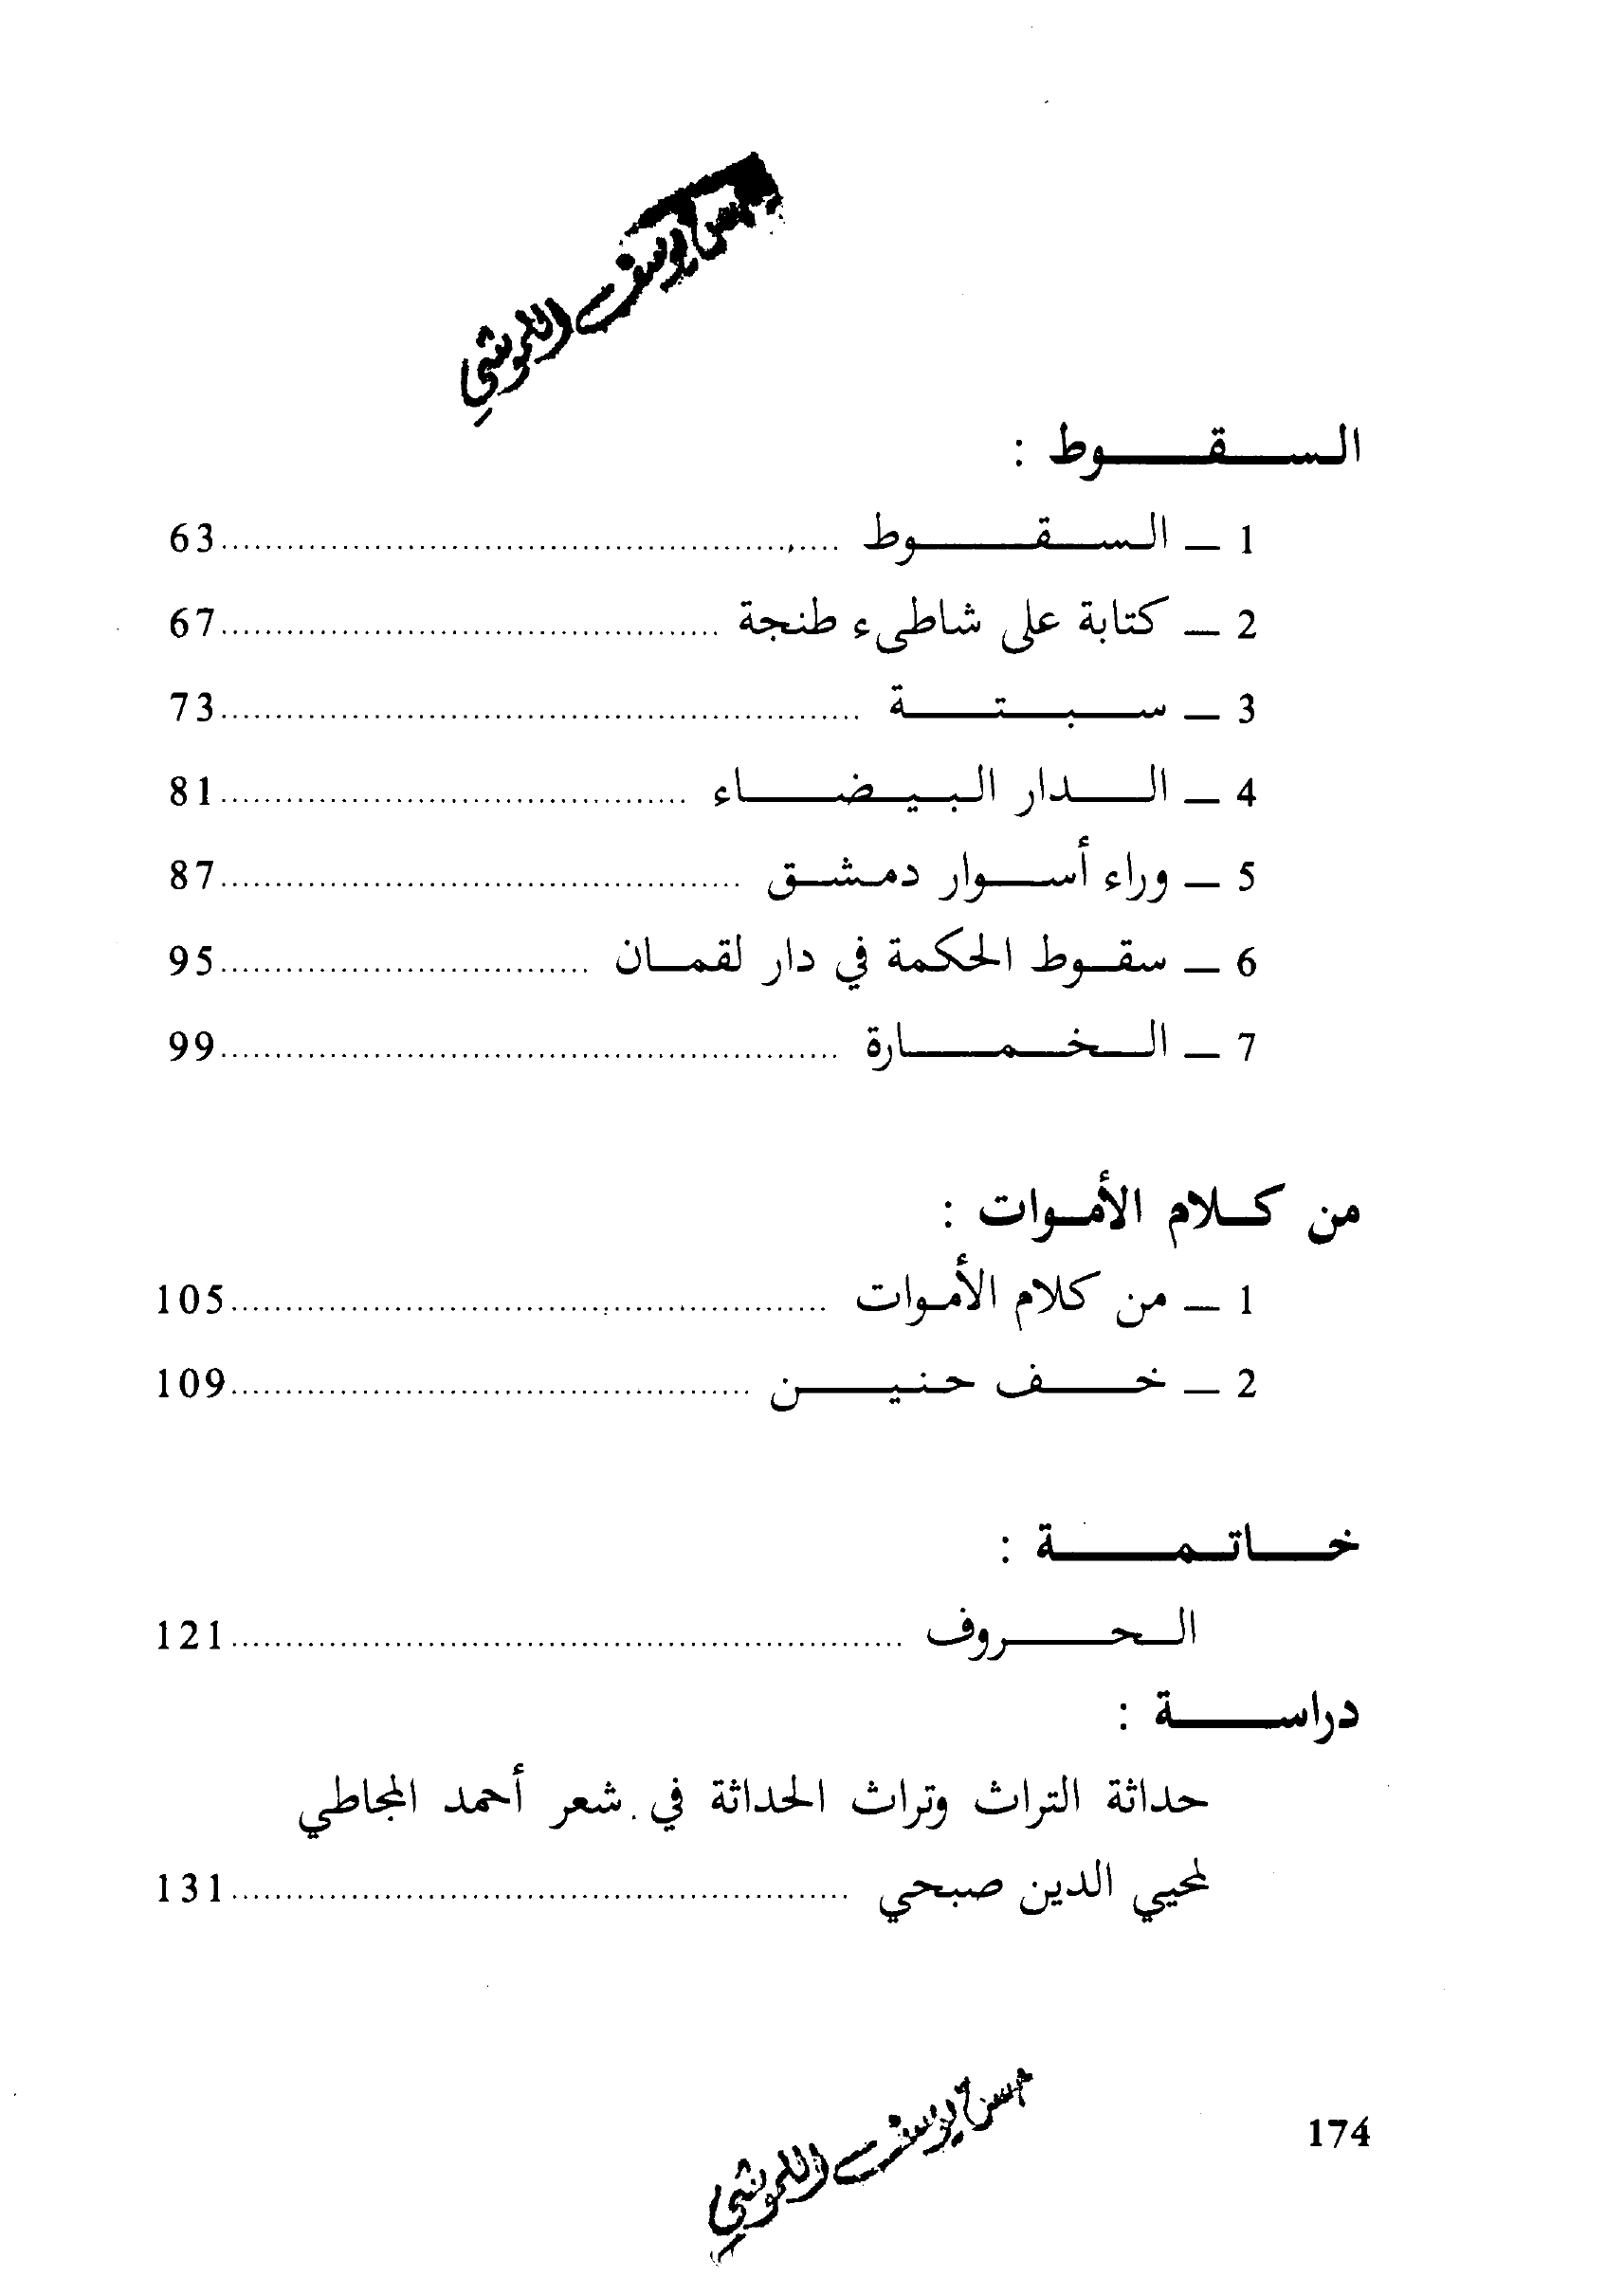 السقوط :
1 _ السقوط ........ 63
2 _ كتابة على شاطىء طنجة ........ 67
3 _ سبتة ........ 73
4 _ الدار البيضاء ........ 81
5 _ وراء أسوار دمشق ........ 87
6 _ سقوط الحكمة في دار لقمان ........ 95
7 _ الخمارة ........ 99
من كلام الأموات :
1 _ من كلام الأموات ........ 105
2 _ خف حنين ........ 109
خاتمة :
الحروف ........ 121
دراسة :
حداثة التراث وتراث الحداثة في شعر أحمد المجاطي
لمحيي الدين صبحي ........ 131
يوسف
174